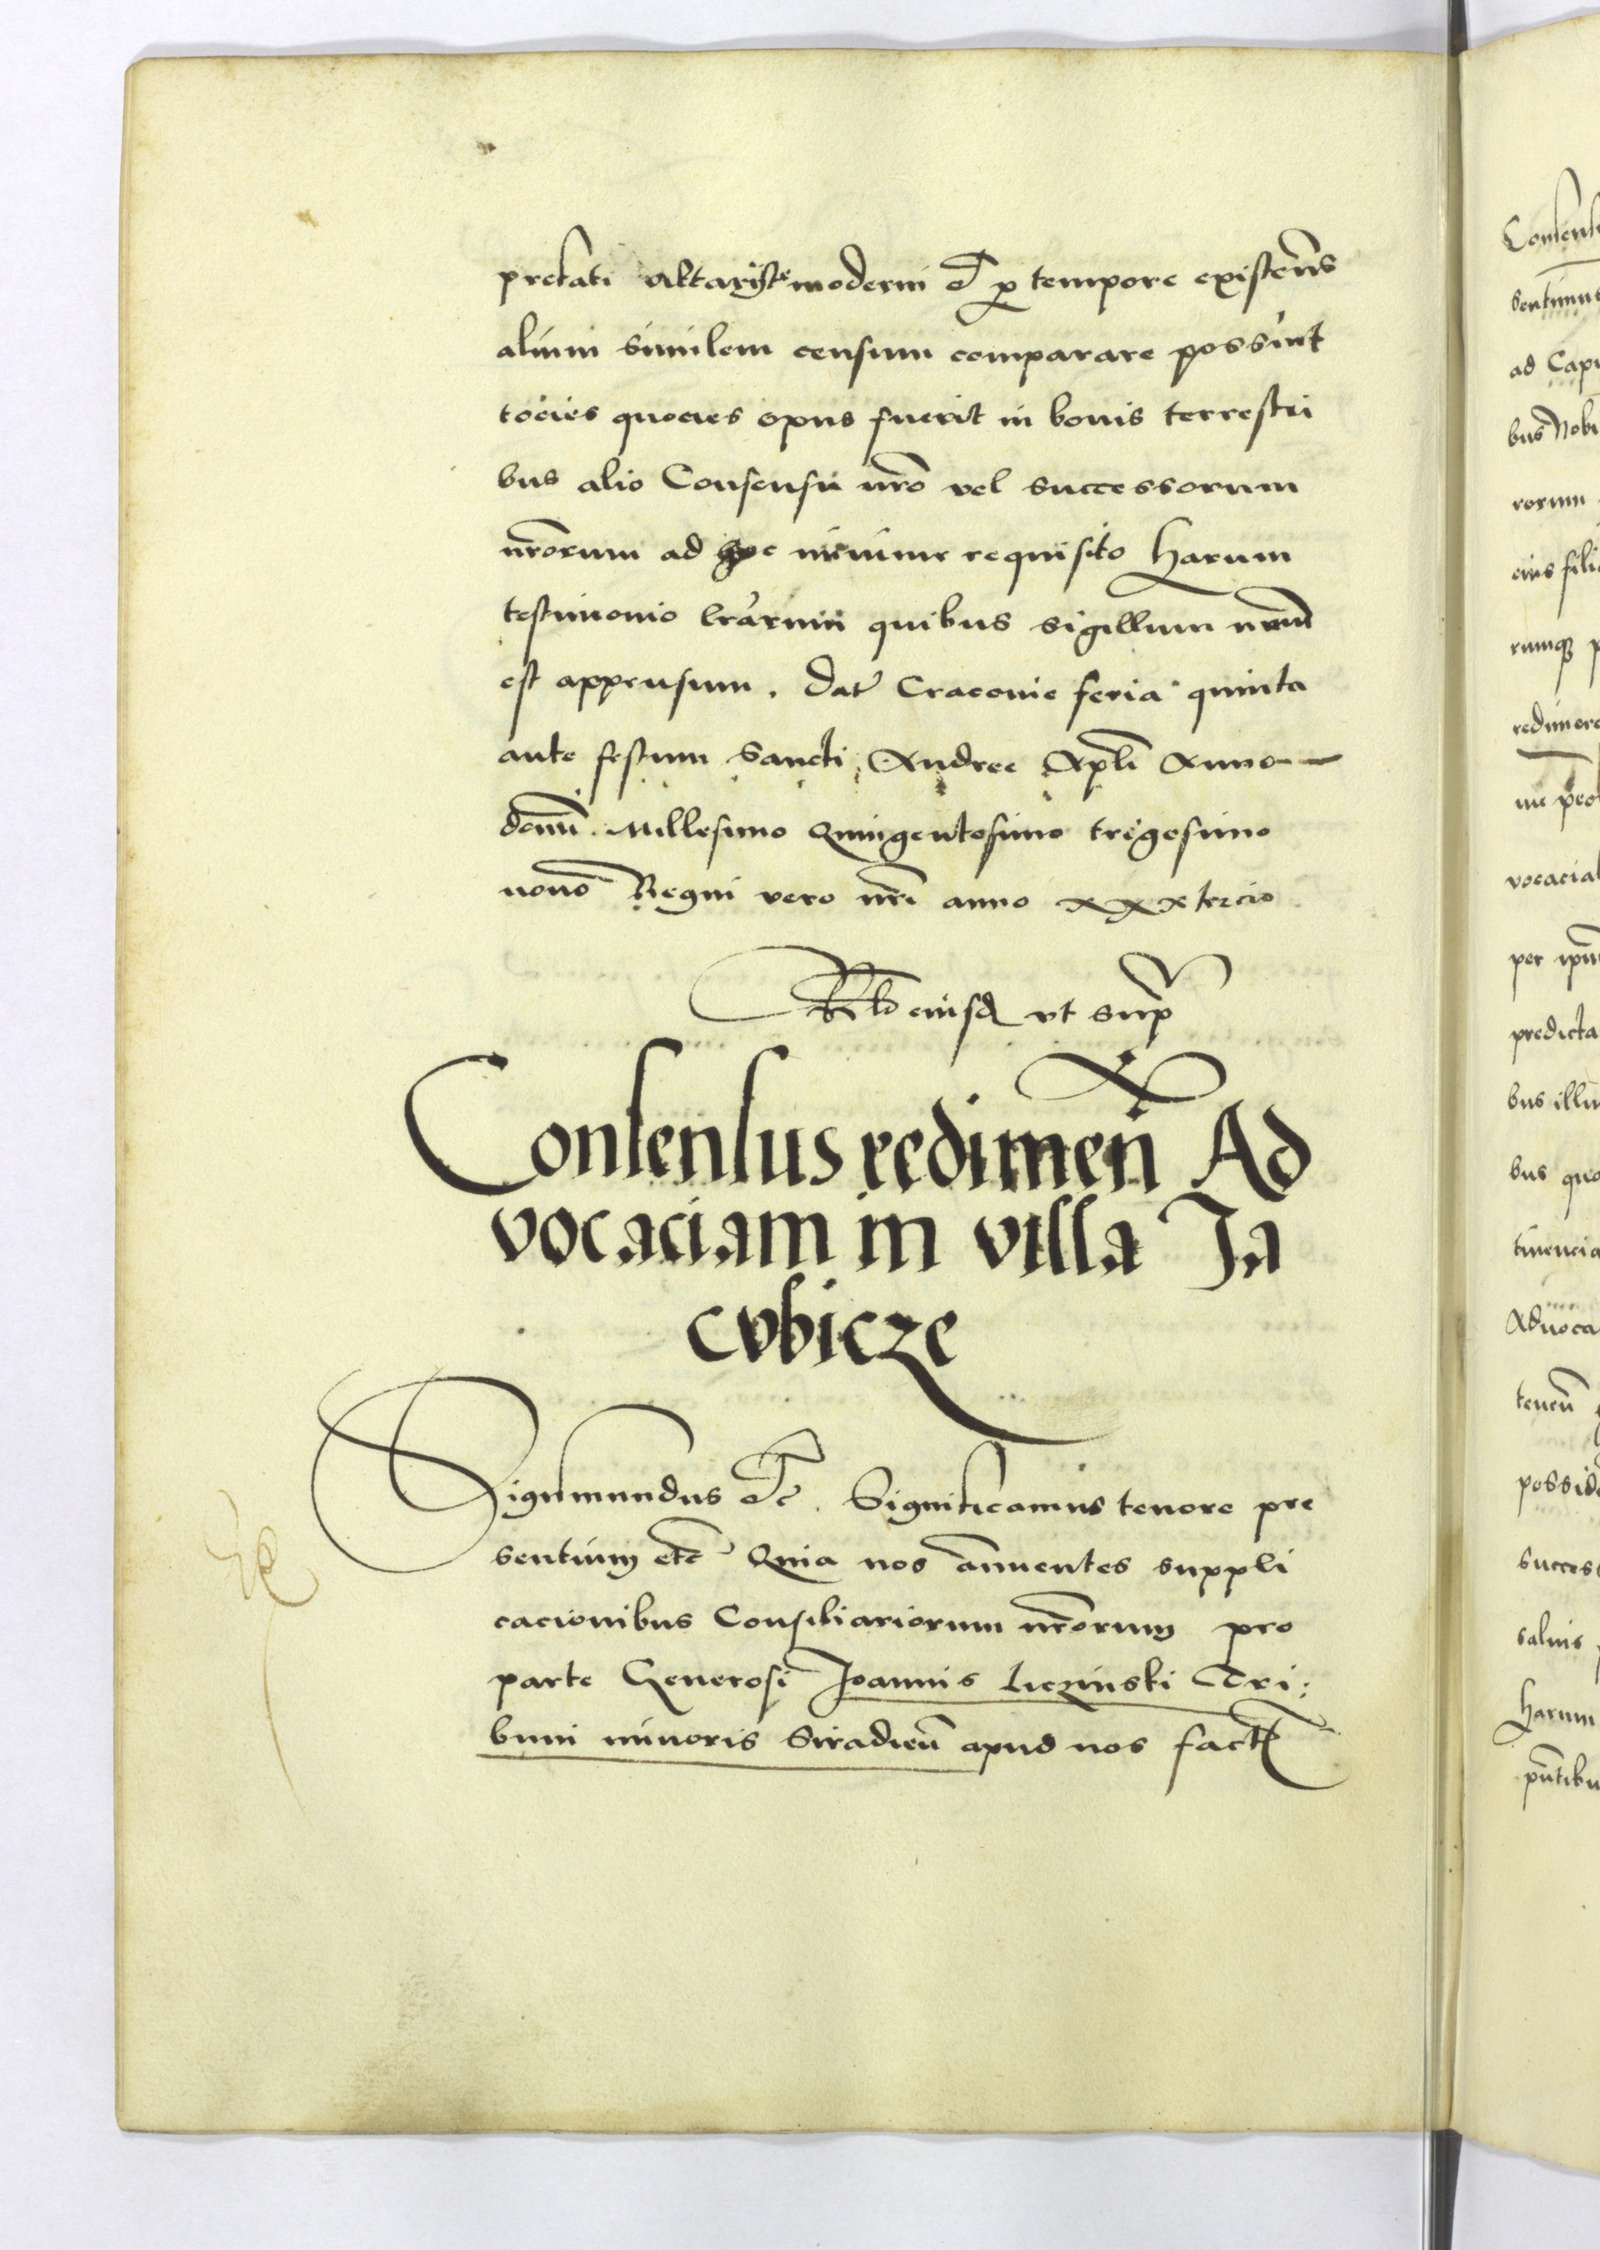 prefati altariste moderni et p tempore existens
alium similem censum comparare possint
tocies quocies opus fuerit in bonis terrestri
bus alio Consensu nro vel successorum
nrorum ad hoc minime requisito Harum
testimonio lrarum quibus sigillum nrum
est appensum. Dat Cracovie feria quinta
ante festum Sancti Andree Apli Anno
domi. Millesimo Quingentesimo trigesimo
nono Regni vero nri anno xxx tercio
Rlo eiusd ut sup
Consensus redimen Ad
vocaciam in villa Ja
cvbicze
Sigismundus etc. Significamus tenore pre
sentium etc Quia nos annuentes suppli
cacionibus Consiliariorum nrorum pro
parte Generosi Joannis Liczinski Tri:
buni minoris Siradien apud nos fact
Consens
sentimus
ad Capi
bus Nobi
rorum
eius fili
rumq p
redimere
vocacia
per ipm
predicta
bus illu
bus quo
tinencia
Advoca
tenen
possid
success
salvis
Harum
pntibu